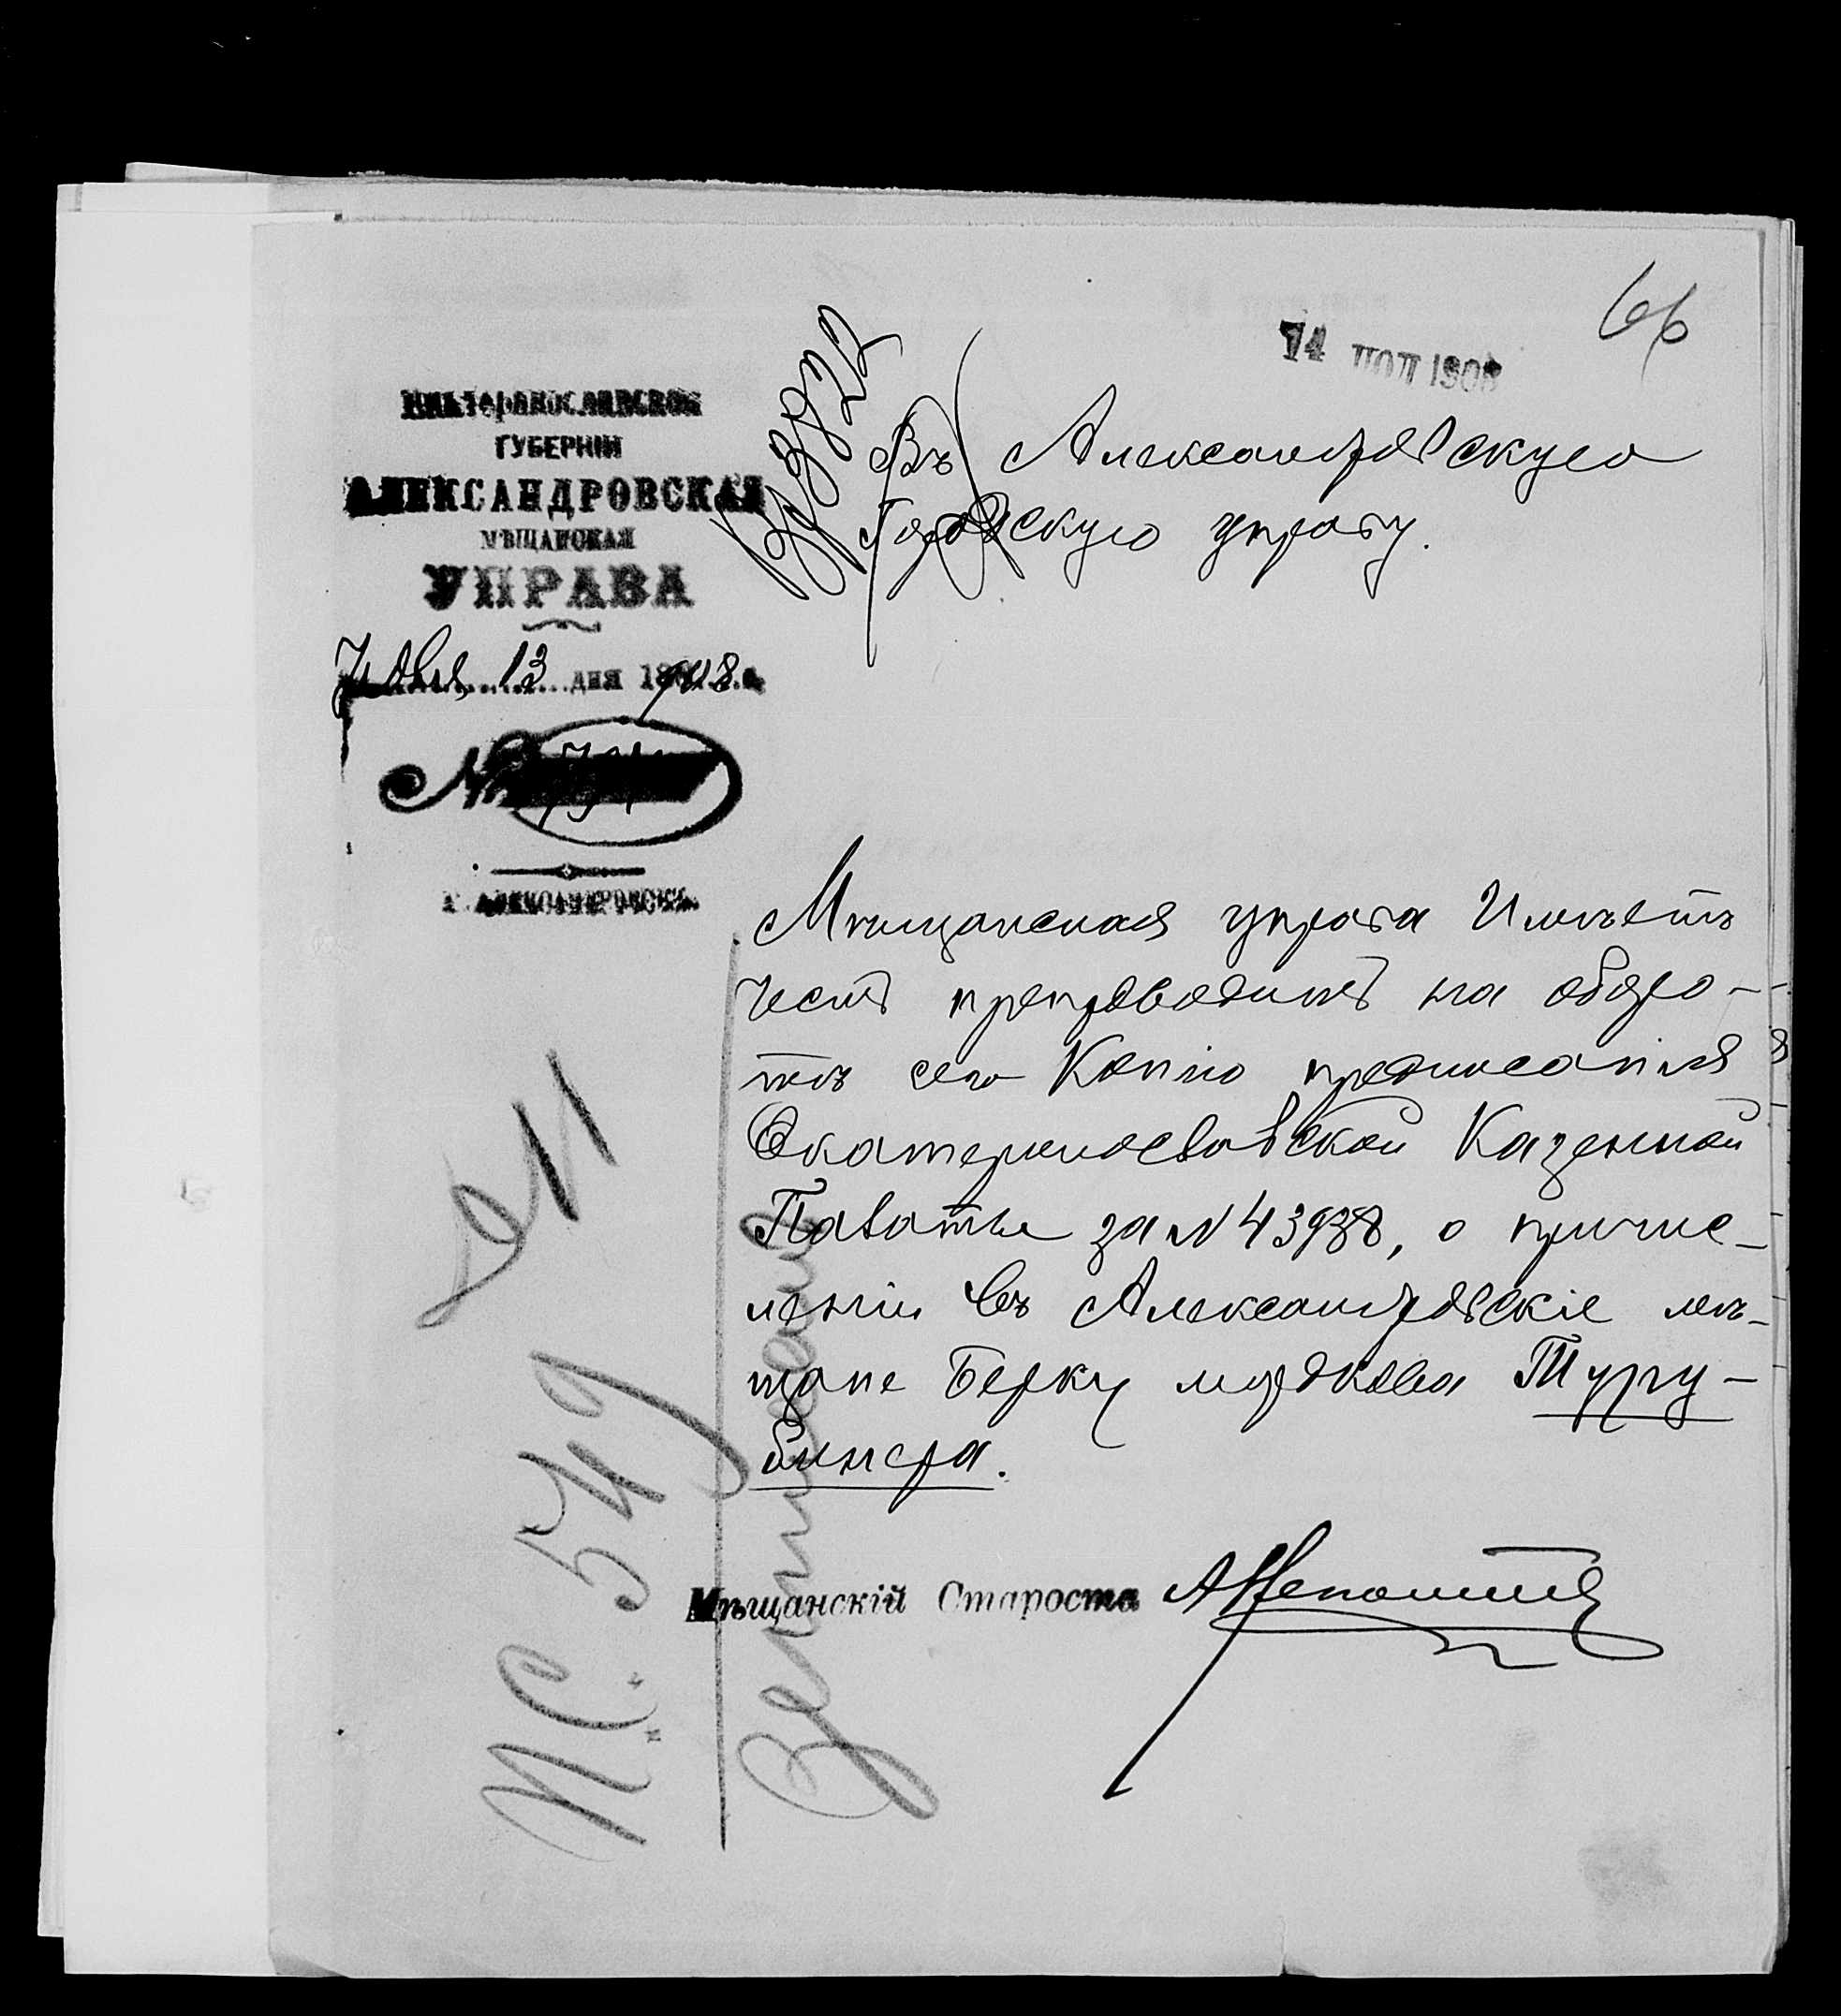 66
14 ІЮЛ 1908
Екатеринославской
ГУБЕРНІИ
АЛЕКСАНДРОВСКАЯ
МѢЩАНСКАЯ
УПРАВА
13 дня 1908 г.
№
Г. АЛЕКСАНДРОВСКЪ.
Въ Александровскую
Городскую управу.
Мѣщанская управа Имѣетъ
честь препроводить на оборо-
тѣ сего Копію предписанія
Екатеринославской Казенной
Палаты за № 43938, о причис-
леніи въ Александровскіе мѣ-
щане Берку мордкова Туру-
бинера.
Мѣщанскій Староста
549